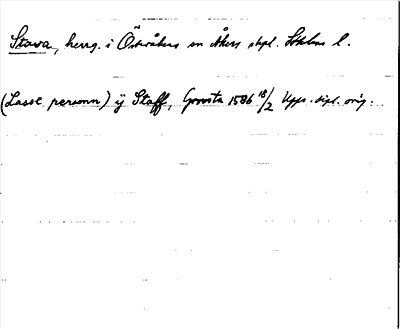 Stava, herrg. i Österåkers sn Åkers skpl. Sthlms l.
(Lasse personn) ÿ Staff, 1586 18/2 Upps. dipl. orig.